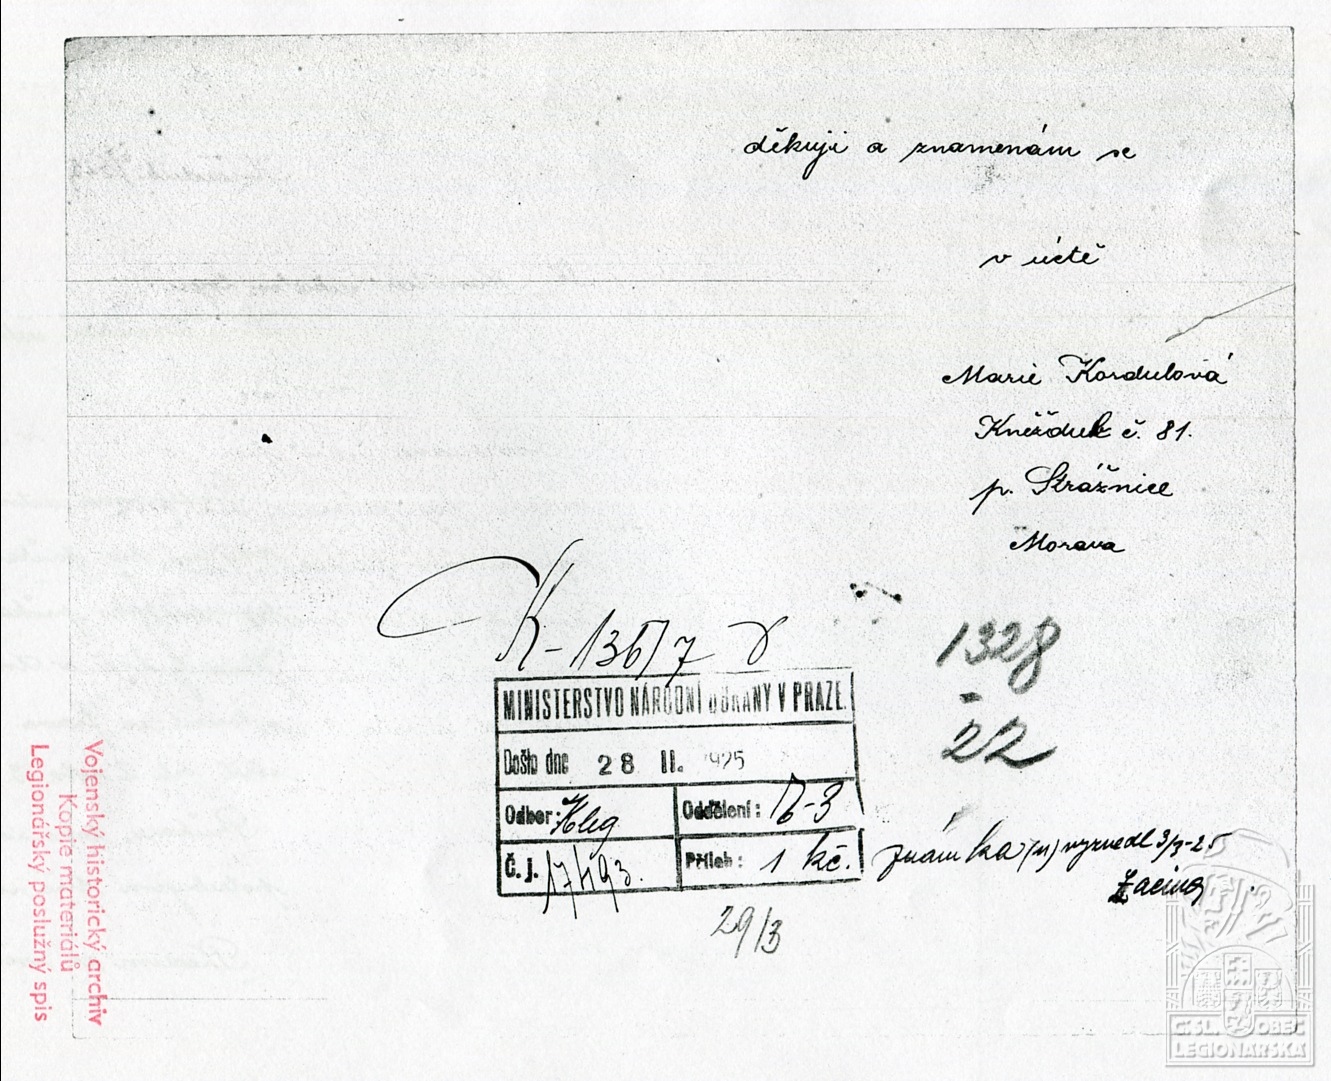 děkuji a znamenám se
v úctě
Marie Kordulová
Kněždub č. 81.
p. Strážnice
Morava
K-136/7
1328
-
22
MINISTERSTVO NÁRODNÍ OBRANY V PRAZE.
Došlo dne 28 II. 1925
Odbor: Kleg Oddělení: B-3
Č. j. 17493. Příloh: 1 kč.
známka (1) vyzvedl 3/3-25
29/3
Vojenský historický archiv
Kopie materiálů
Legionářský poslužný spis
Č.SL. OBEC
LEGIONÁŘSKÁ